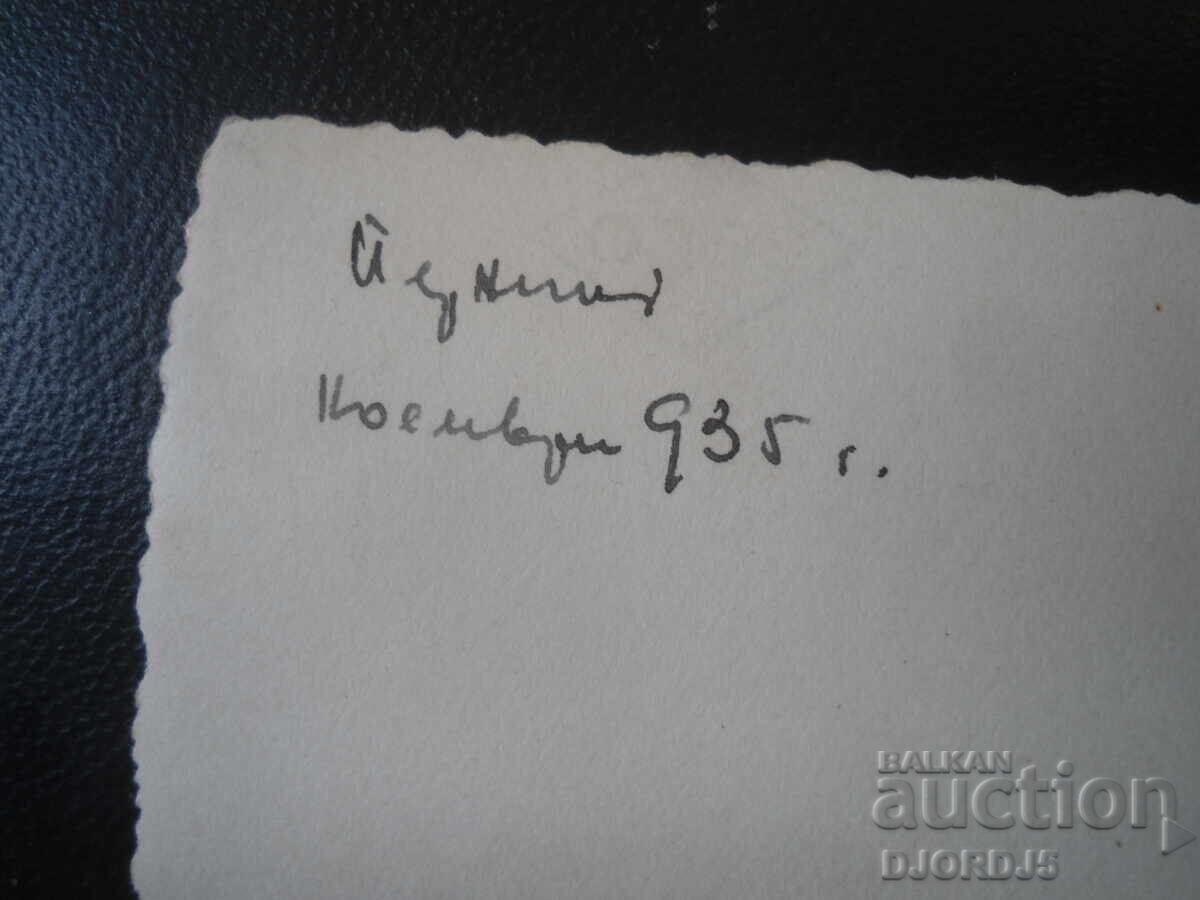 Ноември 935 г.
BALKAN
auction
DJORDJ5